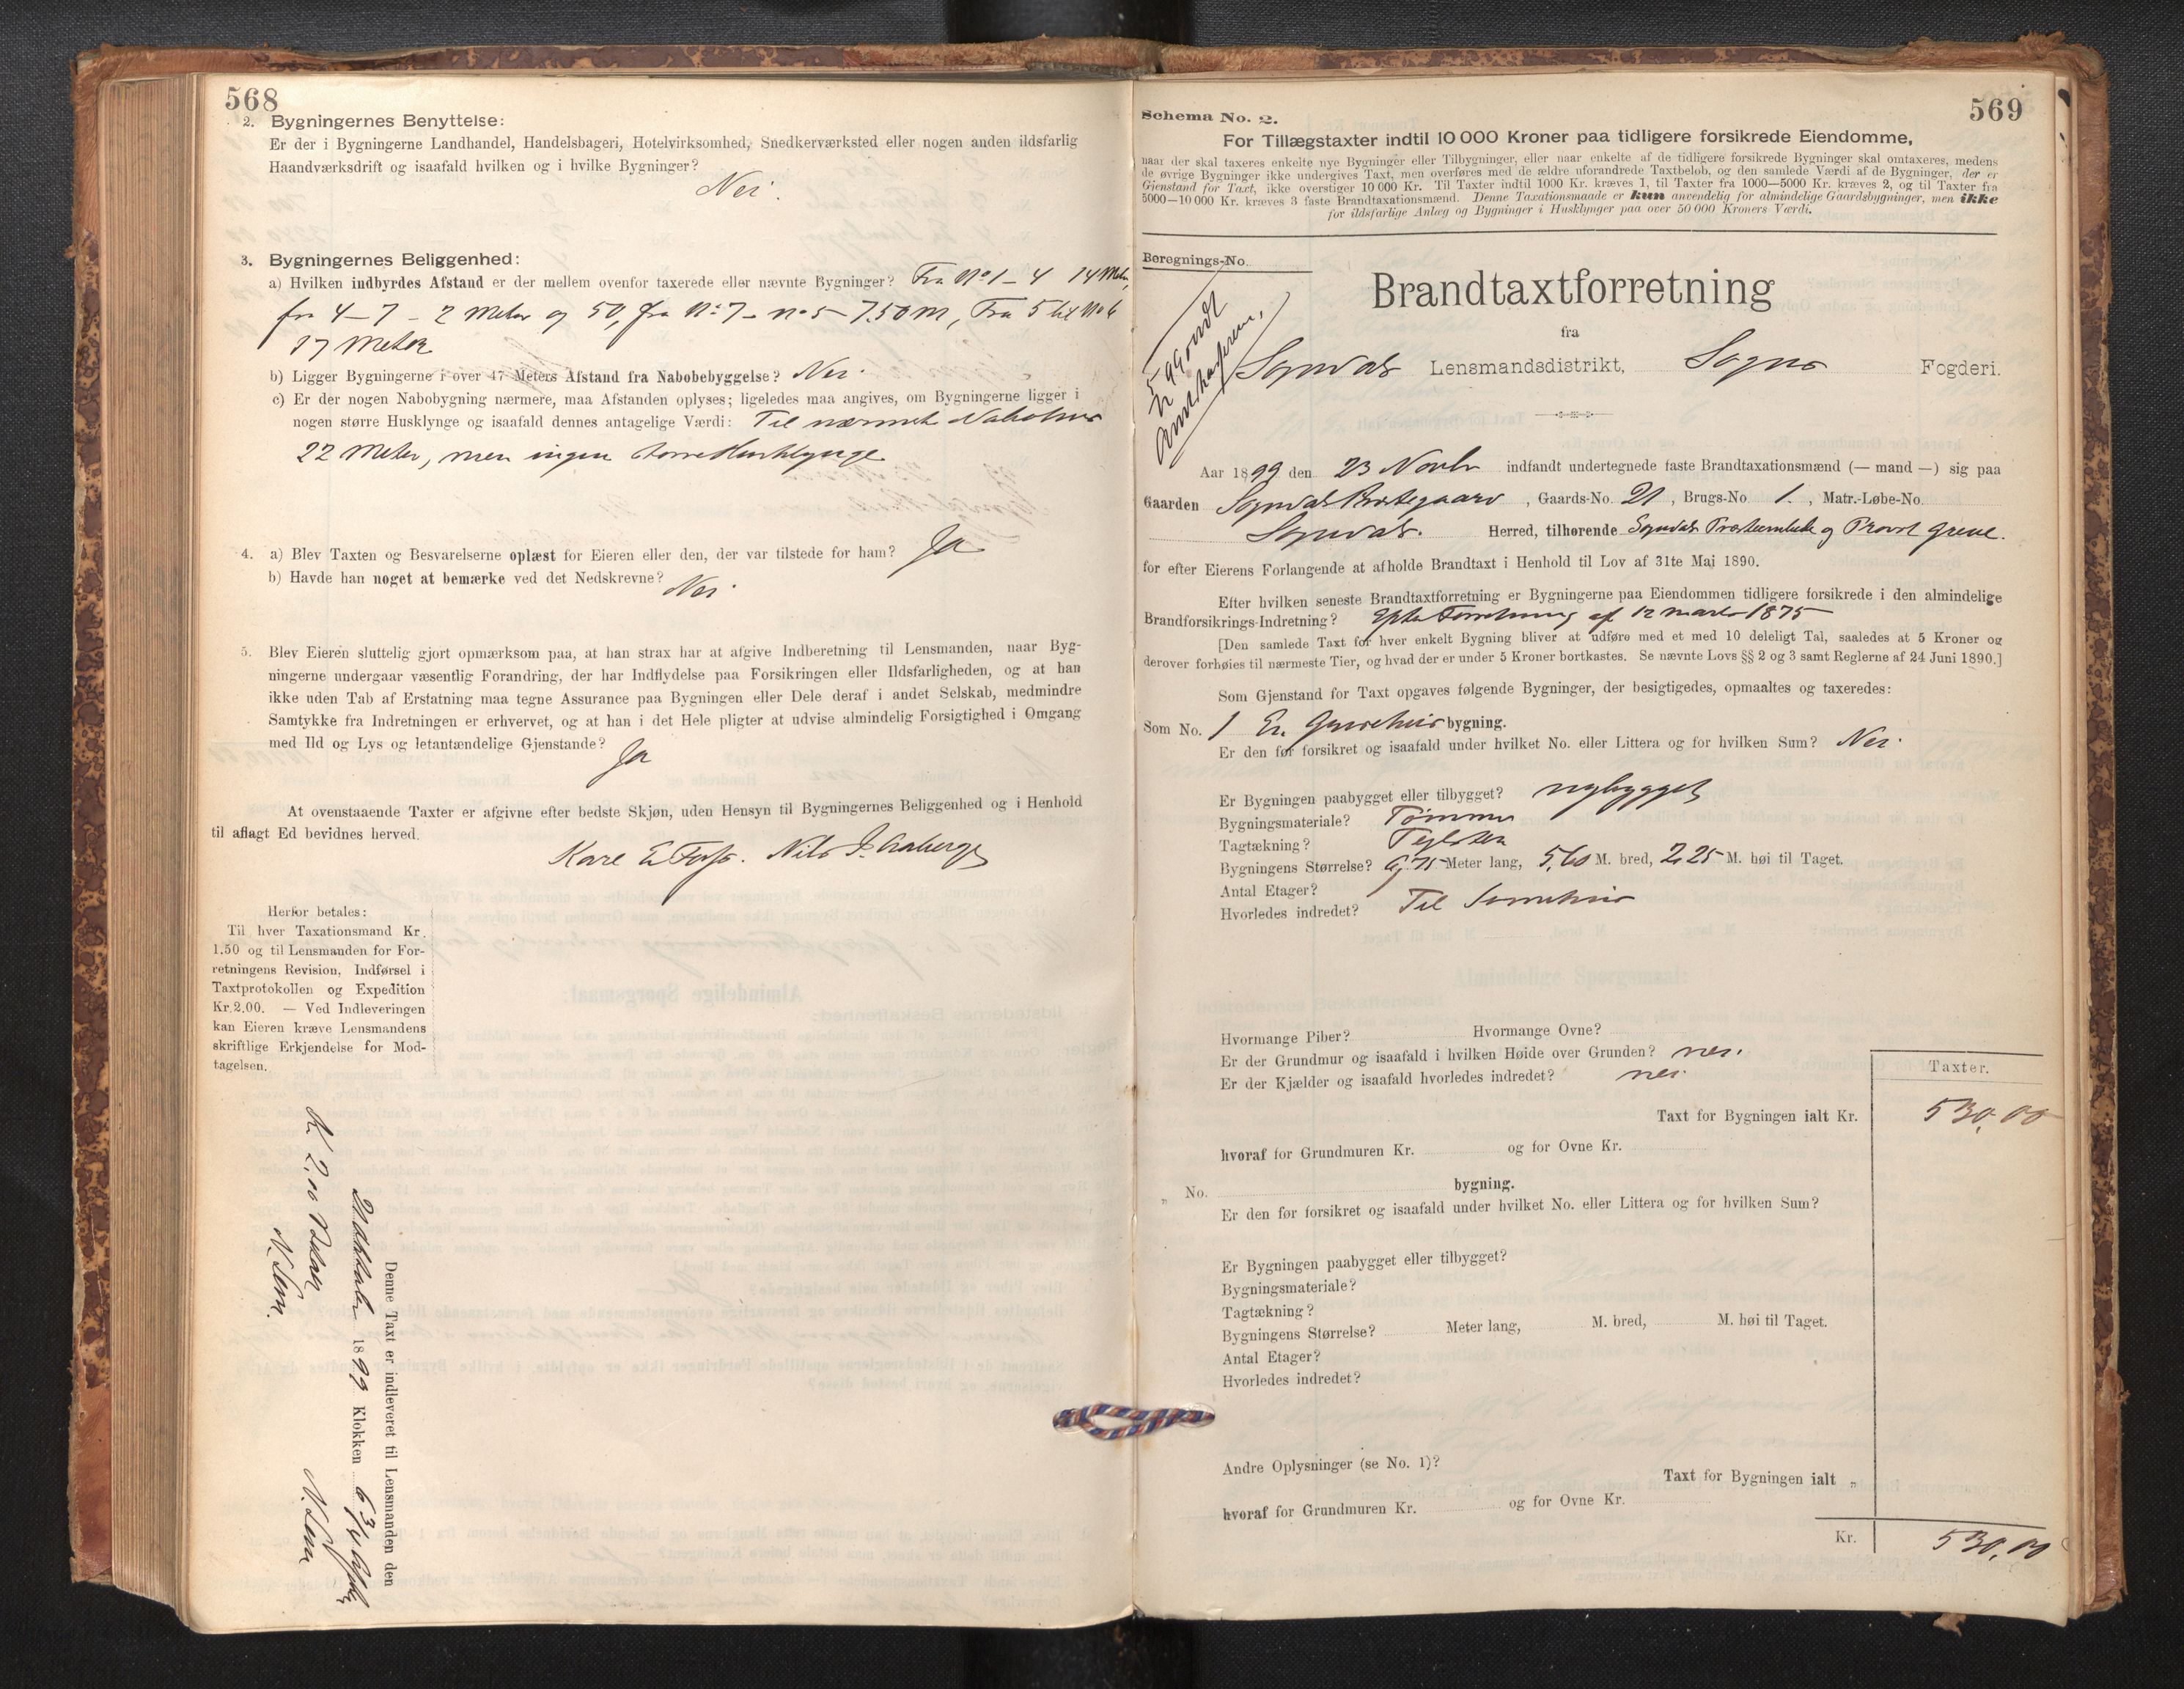 568
2. Bygningernes Benyttelse:
Er der i Bygningerne Landhandel, Handelsbageri, Hotelvirksomhed, Snedkerværksted eller nogen anden ildsfarlig
Haandværksdrift og isaafald hvilken og i hvilke Bygninger?
Nei.
3. Bygningernes Beliggenhed:
a) Hvilken indbyrdes Afstand er der mellem ovenfor taxerede eller nævnte Bygninger? Fra No 1 - 4 14 Meter,
fra 4-7 - 2 Meter og 50, fra No 7 - no 5 - 7.50 M, Fra 5 til No 6
17 Meter
b) Ligger Bygningerne i over 47 Meters Afstand fra Nabobebyggelse? Nei.
c) Er der nogen Nabobygning nærmere, maa Afstanden oplyses; ligeledes maa angives, om Bygningerne ligger i
nogen større Husklynge og isaafald dennes antagelige Værdi: Til nærmeste Nabohus
22 Meter, men ingen større Husklynge
4. a) Blev Taxten og Besvarelserne oplæst for Eieren eller den, der var tilstede for ham? Ja
b) Havde han noget at bemærke ved det Nedskrevne? Nei
5. Blev Eieren sluttelig gjort opmærksom paa, at han strax har at afgive Indberetning til Lensmanden, naar Byg-
ningerne undergaar væsentlig Forandring, der har Indflydelse paa Forsikringen eller Ildsfarligheden, og at han
ikke uden Tab af Erstatning maa tegne Assurance paa Bygningen eller Dele deraf i andet Selskab, medmindre
Samtykke fra Indretningen er erhvervet, og at han i det Hele pligter at udvise almindelig Forsigtighed i Omgang
med Ild og Lys og letantændelige Gjenstande? Ja
At ovenstaaende Taxter er afgivne efter bedste Skjøn, uden Hensyn til Bygningernes Beliggenhed og i Henhold
til aflagt Ed bevidnes herved.
Nils J.
Herfor betales:
Til hver Taxationsmand Kr.
1.50 og til Lensmanden for For-
retningens Revision, Indførsel i
Taxtprotokollen og Expedition
Kr. 2.00. — Ved Indleveringen
kan Eieren kræve Lensmandens
skriftlige Erkjendelse for Mod-
tagelsen.
Denne Taxt er indleveret til Lensmanden den
1899 Klokken 6 3/4
Kr 2,00 Betalt
569
Schema No. 2.
For Tillægstaxter indtil 10 000 Kroner paa tidligere forsikrede Eiendomme,
naar der skal taxeres enkelte nye Bygninger eller Tilbygninger, eller naar enkelte af de tidligere forsikrede Bygninger skal omtaxeres, medens
de øvrige Bygninger ikke undergives Taxt, men overføres med de ældre uforandrede Taxtbeløb, og den samlede Værdi af de Bygninger, der er
Gjenstand for Taxt, ikke overstiger 10 000 Kr. Til Taxter indtil 1000 Kr. kræves 1, til Taxter fra 1000—5000 Kr. kræves 2, og til Taxter fra
5000—10 000 Kr. kræves 3 faste Brandtaxationsmænd. Denne Taxationsmaade er kun anvendelig for almindelige Gaardsbygninger, men ikke
for ildsfarlige Anlæg og Bygninger i Husklynger paa over 50 000 Kroners Værdi.
Beregnings-No.
Brandtaxtforretning
fra
Sogndals Lensmandsdistrikt, Sogns Fogderi.
Aar 1899 den 23 Novbr indfandt undertegnede faste Brandtaxationsmænd (— mand —) sig paa
Gaarden Sogndals Præstegaard, Gaards-No. 21, Brugs-No. 1., Matr.-Løbe-No.
Sogndals. Herred, tilhørende Sogndals Præsteembede og Provst Greve.
for efter Eierens Forlangende at afholde Brandtaxt i Henhold til Lov af 31te Mai 1890.
Efter hvilken seneste Brandtaxtforretning er Bygningerne paa Eiendommen tidligere forsikrede i den almindelige
Brandforsikrings-Indretning? Efter Forretning af 12 marts 1875
[Den samlede Taxt for hver enkelt Bygning bliver at udføre med et med 10 deleligt Tal, saaledes at 5 Kroner og
derover forhøies til nærmeste Tier, og hvad der er under 5 Kroner bortkastes. Se nævnte Lovs §§ 2 og 3 samt Reglerne af 24 Juni 1890.]
Som Gjenstand for Taxt opgaves følgende Bygninger, der besigtigedes, opmaaltes og taxeredes:
Som No. 1 En bygning.
Er den før forsikret og isaafald under hvilket No. eller Littera og for hvilken Sum? Nei.
Er Bygningen paabygget eller tilbygget? nybygget
Bygningsmateriale? Tømmer
Tagtækning? Teglsten
Bygningens Størrelse? 9,75 Meter lang, 5,60 M. bred, 2,25 M. høi til Taget.
Antal Etager?
Hvorledes indredet? Til
Hvormange Piber? Hvormange Ovne?
Er der Grundmur og isaafald i hvilken Høide over Grunden? nei.
Er der Kjælder og isaafald hvorledes indredet? nei.
Taxter.
Taxt for Bygningen ialt Kr. 530,00
hvoraf for Grundmuren Kr. og for Ovne Kr.
„ No. bygning.
Er den før forsikret og isaafald under hvilket No. eller Littera og for hvilken Sum?
Er Bygningen paabygget eller tilbygget?
Bygningsmateriale?
Tagtækning?
Bygningens Størrelse? Meter lang, M. bred, M. høi til Taget.
Antal Etager?
Hvorledes indredet?
Andre Oplysninger (se No. 1)?
Taxt for Bygningen ialt „
hvoraf for Grundmuren Kr. og for Ovne Kr.
Kr. 530,00